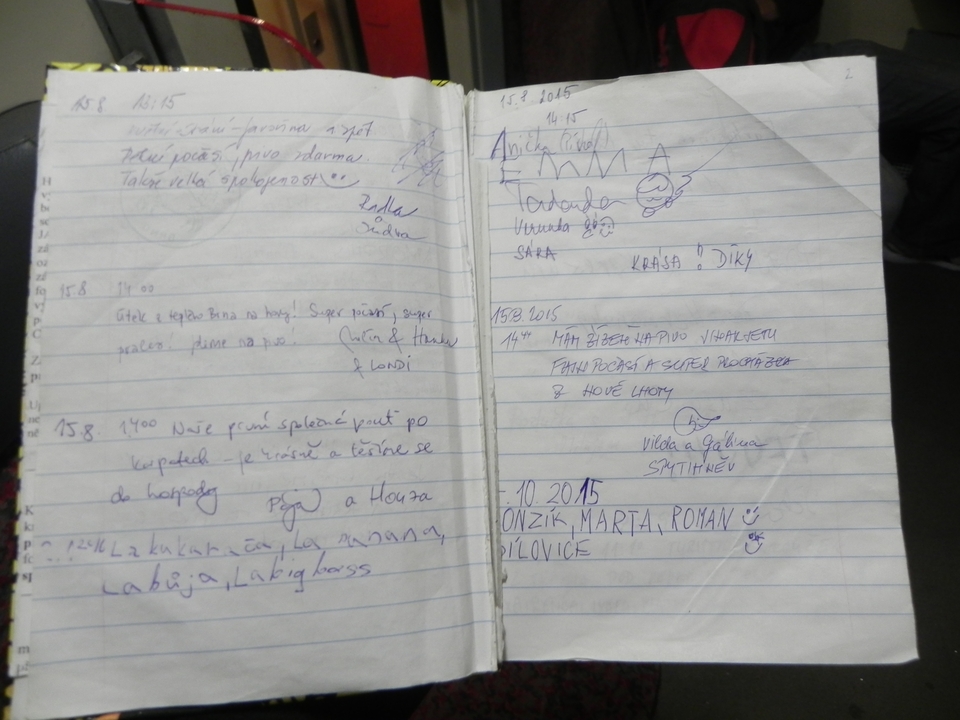 15.8 13:15
javořina a zpět
počasí, pivo zdarma
Takže velká spokojenost
Radka
Jindra
15.8 14 00
Útěk z teplého Brna na hory! Super počasí, super
přátelé! jdeme na pivo!
& Hanka
& LONDI
15.8. 14 00 Naše první společná pouť po
karpatech - je krásně a těšíme se
do hospody
Pája a Honza
La kukarača, La mañana,
Labůja, Labig boss
2
15.8 2015
14:15
Anička
EMMA
Verunka
SÁRA
KRÁSA !! DÍKY
15.8.2015
14 MÁM ŽÍZEŇ NA PIVO JINAK JE TU
FAJN POČASÍ A SUPER PROCHÁZKA
Z NOVÉ LHOTY
Vilda a Gábina
SPYTIHNĚV
.10.2015
ONZÍK, MARTA, ROMAN
ÍLOVICE